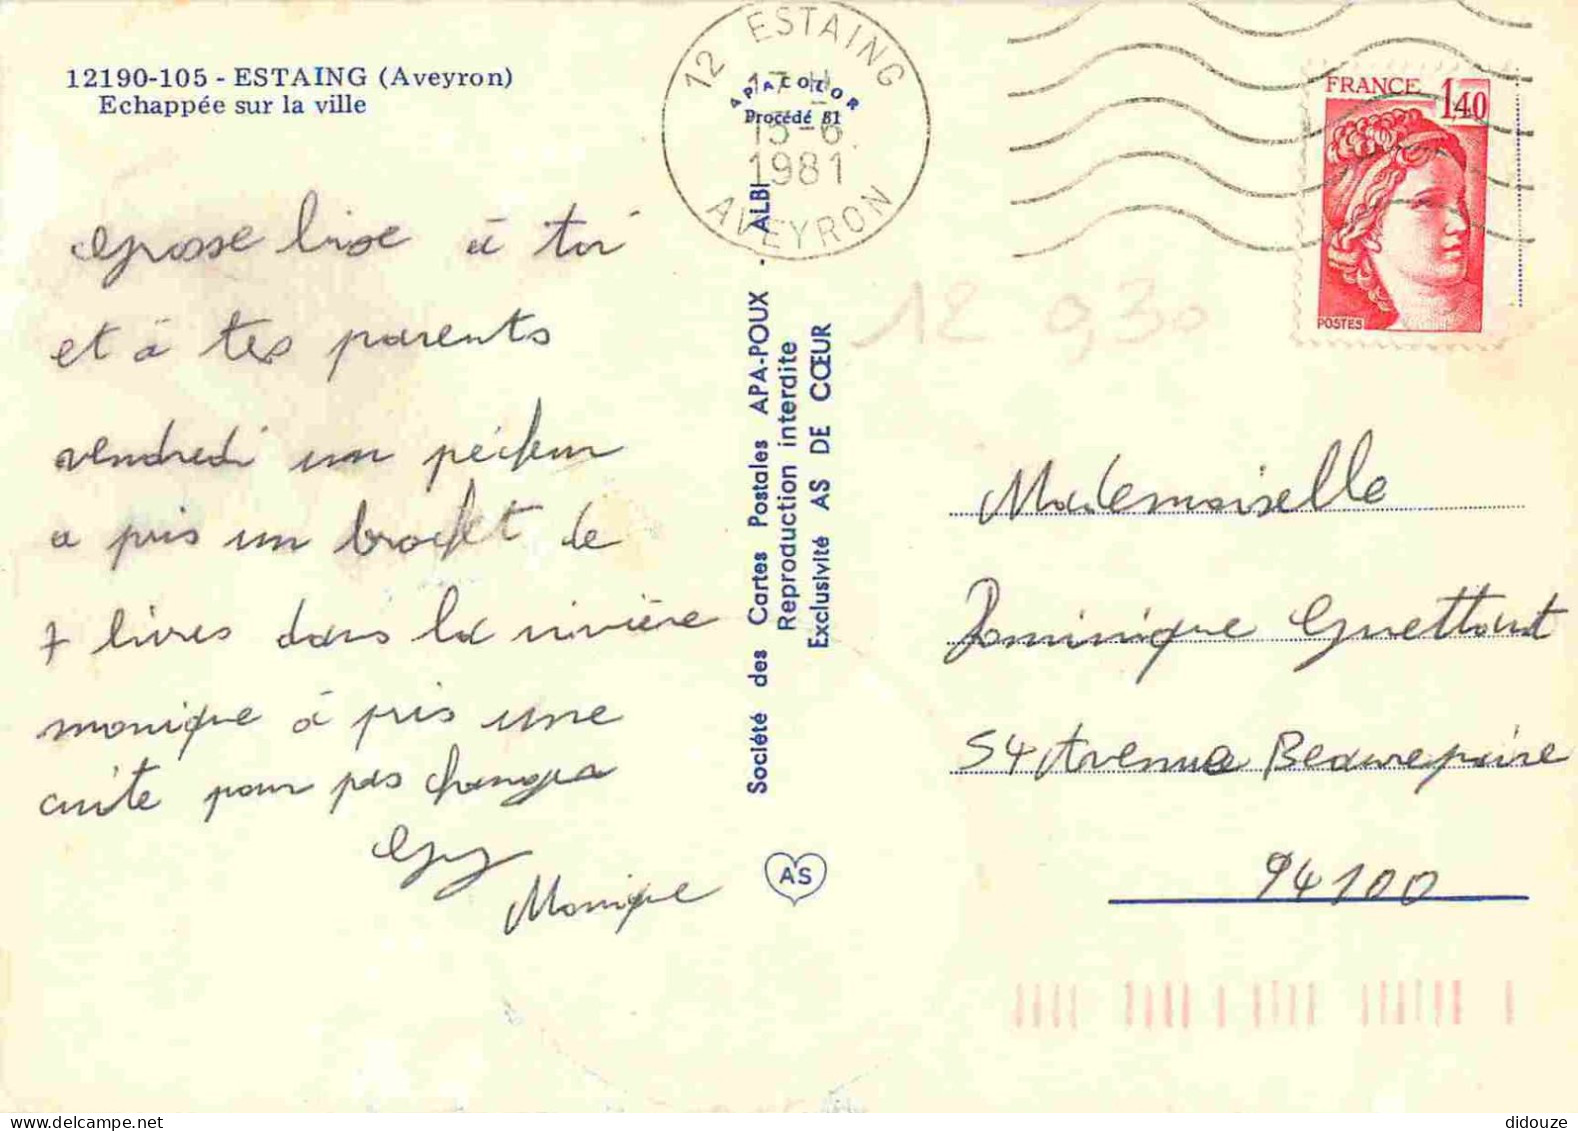 12190-105 - ESTAING (Aveyron)
Echappée sur la ville
grosse bise à toi
et à tes parents
vendredi un pécheur
a pris un brochet de
7 livres dans la rivière
monique à pris une
cuite pour pas changer
Guy
Monique
12 ESTAING
17 H
15-6
1981
AVEYRON
APACOLOR
Procédé 81
Société des Cartes Postales APA-POUX - ALBI
Reproduction interdite
Exclusivité AS DE CŒUR
AS
FRANCE
1,40
POSTES
12 0,30
Mademoiselle
Dominique
54 Avenue Beaurepaire
94100
didouze